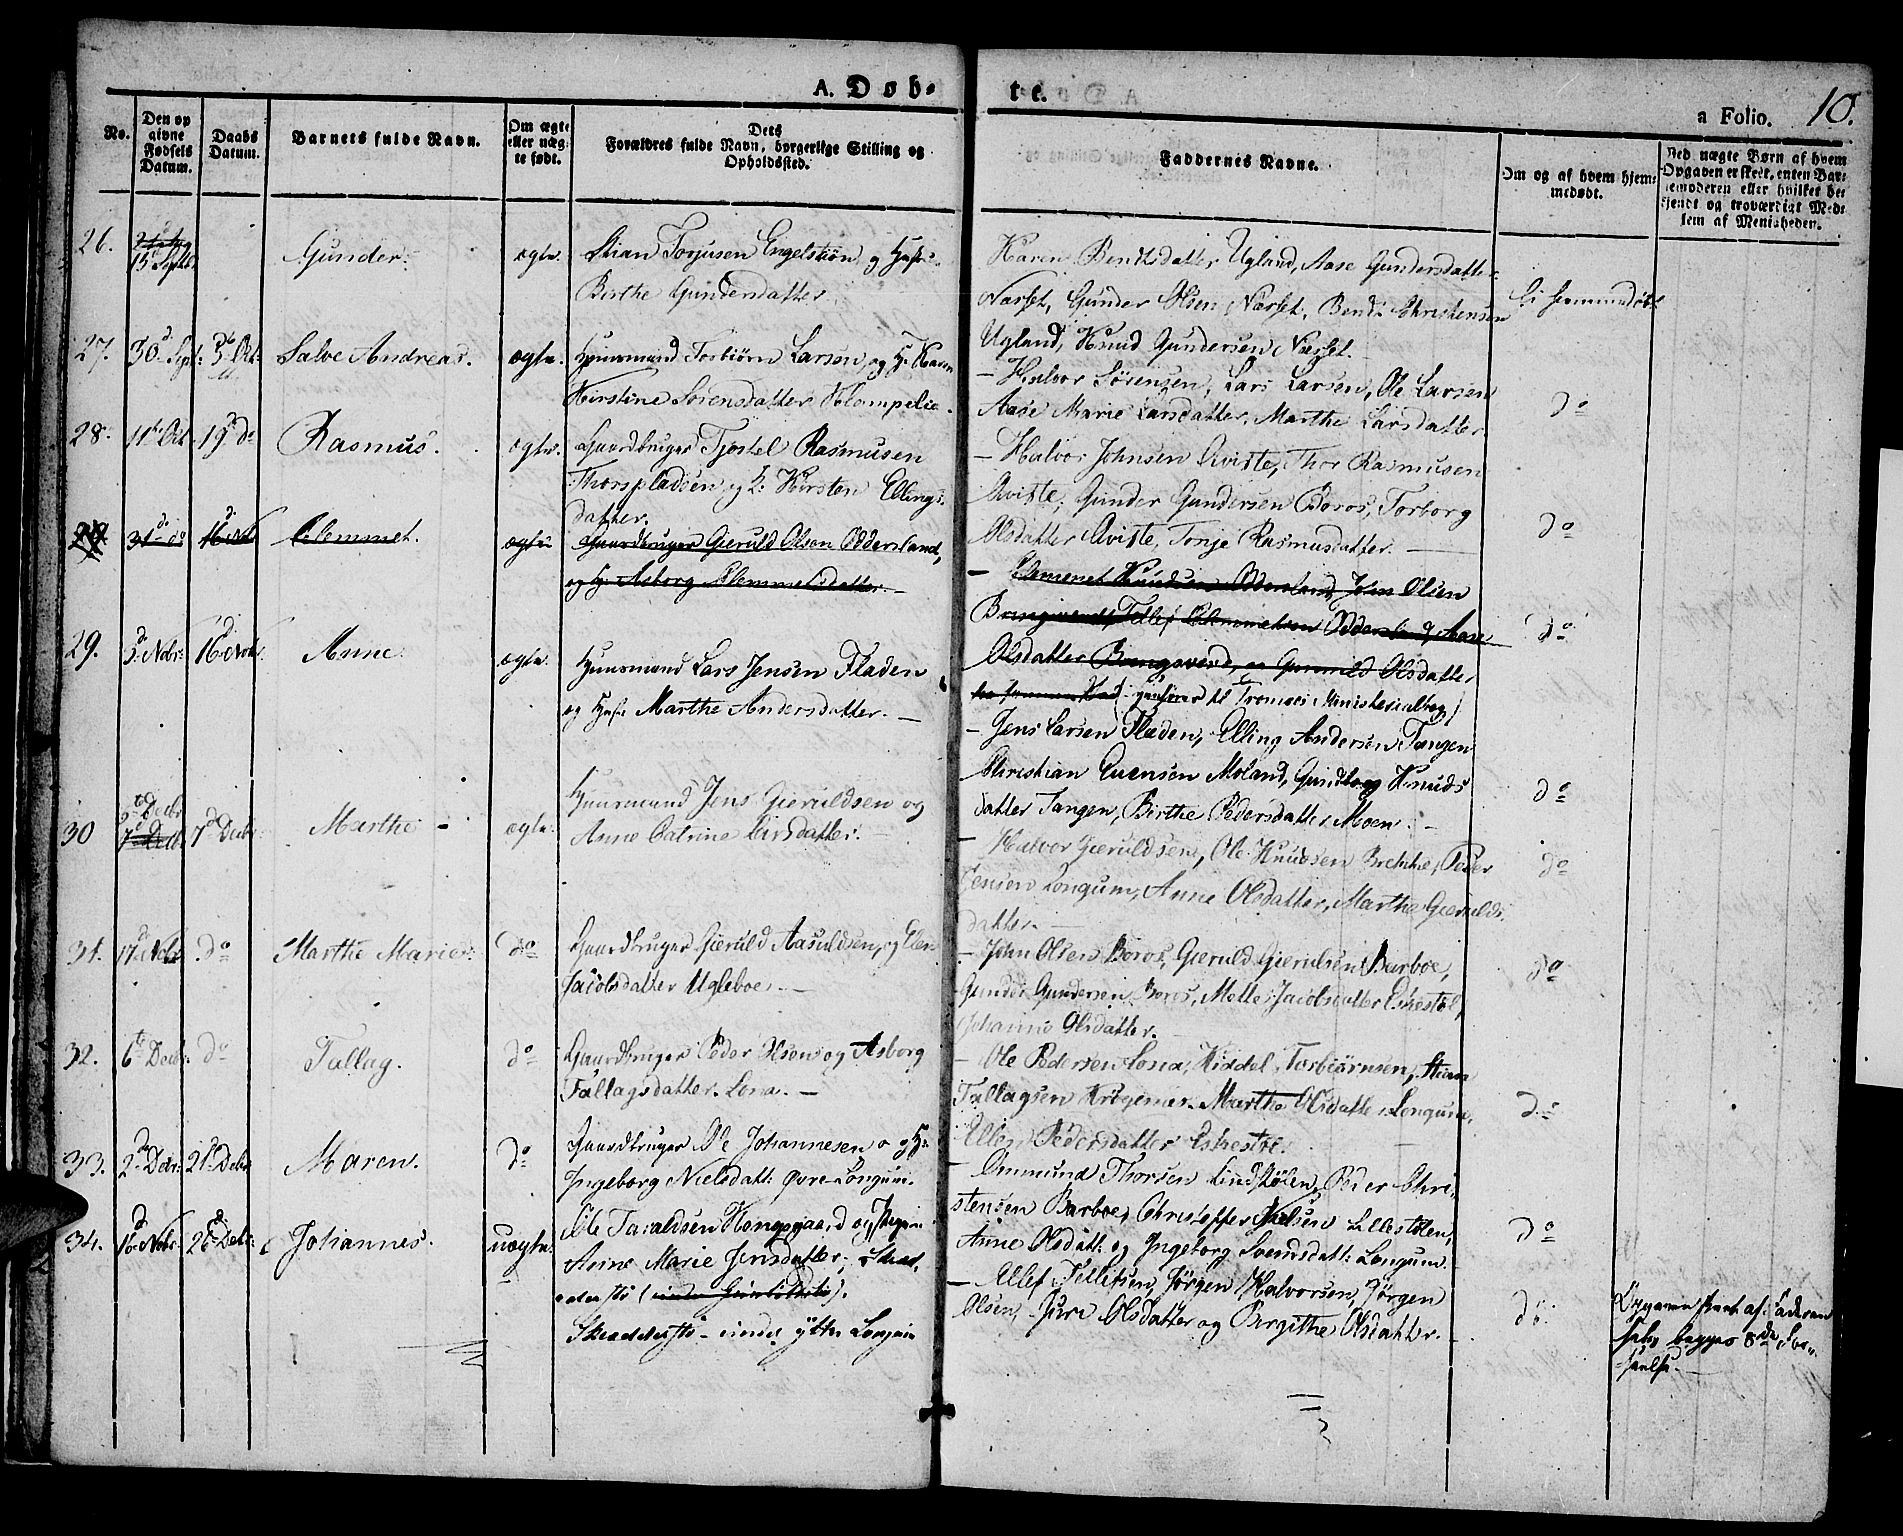 A. Døb-
te.
a Folio. 10.
No.
Den op
givne
Fødsels
Datum.
Daabs
Datum.
Barnets fulde Navn.
Om ægte
eller uæg-
te født.
Dets
Forældres fulde Navn, borgerlige Stilling og
Opholdssted.
Faddernes Navne.
Om og af hvem hjem-
medøbt.
Ved uægte Børn af hvem
Opgaven er skeet, enten Bar-
nemoderen eller hvilket be-
kjendt og troværdigt Med-
lem af Menigheden.
26.
15 Septb.
Gunder.
ægte.
Stian Torjusen Engelstiøn og Husfr.
Birthe Gundersdatter
Karen Bendtsdatter Ugland, Aase Gundersdatter
Næsset, Gunder Olsen Næsset, Bendt Christensen
Ugland, Knud Gundersen Næsset.
Ei hiemmedøbt
27. 30 Sept: Oct:
Salve Andreas.
ægte.
Huusmand Torbiörn Larsen, og H. Karen
Kirstine Sörensdatter Klampelie.
- Halvor Sörensen, Lars Larsen, Ole Larsen
Aase Marie Larsdatter, Marthe Larsdatter.
do
28. 11te Oct. 19d do
Rasmus.
ægte.
Gaardbruger Tjöstel Rasmusen
Thorspladsen og H: Kirsten Ellings-
datter.
- Halvor Johnsen Qviste, Thor Rasmusen
Qviste, Gunder Gundersen Boros, Torborg
Olsdatter Qviste, Tonje Rasmusdatter.
do
29. 31 do 16 Nov
Clemmet.
ægte
Gaardbruger Gieruld Olsen Oddersland,
og H: Asborg Clemmetsdatter.
- Clemmet Knudsen Oddersland, John Olsen
Bringsverd, Tellef Clemmetsen Oddersland, Aase
Olsdatter Bringsverd, og Gunnild Olsdatter
(henföres til Tromöe Ministerialbog)
do
29. 3 Nobr: 16 Nobr.
Anne.
ægte.
Huusmand Lars Jensen Fladen
og Husfr. Marthe Andersdatter.
- Jens Larsen Fladen, Elling Andersen Tangen
Christian Evensen Moland, Gundborg Knuds
datter Tangen, Birthe Pedersdatter Moen.
do
30 Decbr 7d Decbr:
Marthe
ægte.
Huusmand Jens Gieruldsen og
Anne Catrine Larsdatter.
- Halvor Gieruldsen, Ole Knudsen Brekke, Peder
Jensen Longum, Anne Olsdatter, Marthe Gierulds-
datter.
do
31. 17d Nobr do
Marthe Marie.
do
Gaardbruger Gieruld Aasuldsen, og Elen
Jacobsdatter Ugleboe.
- John Olsen Boros, Gieruld Gierulsen Barboe,
Gunder Gundersen Boros, Mette Jacobsdatter Eskestøl,
Johanne Olsdatter.
do
32. 6te Decbr: do
Tallag.
do
Gaardbruger Peder Olsen og Asborg
Tallagsdatter Lona.
- Ole Pedersen Lona, Kiddel Torbiörnsen, Stian
Tallagsen Krögenæs, Marthe Olsdatter Longum,
Ellen Pedersdatter Eskestøe.
do
33. 2d Decbr: 21 Decbr
Maren.
do
Gaardbruger Ole Johannesen og H:
Ingeborg Nielsdatt: øvre Longum.
- Ommund Thorsen Lindstölen, Peder Chri-
stensen Barboe, Christopher Nielsen Lillestölen,
Anne Olsdatt: og Ingeborg Svendsdatt: Longum.
do
34. 16 Nobr: 26 Decbr:
Johannes.
uægte.
Ole Taraldsen Kongsgaard og Pigen
Anne Marie Jensdatter,
Longum
- Ellef Tellefsen, Jörgen Halvorsen, Jörgen
Olsen, Juri Olsdatter og Birgithe Olsdatter.
do
Opgaven skeet af Faderen
selv, begges